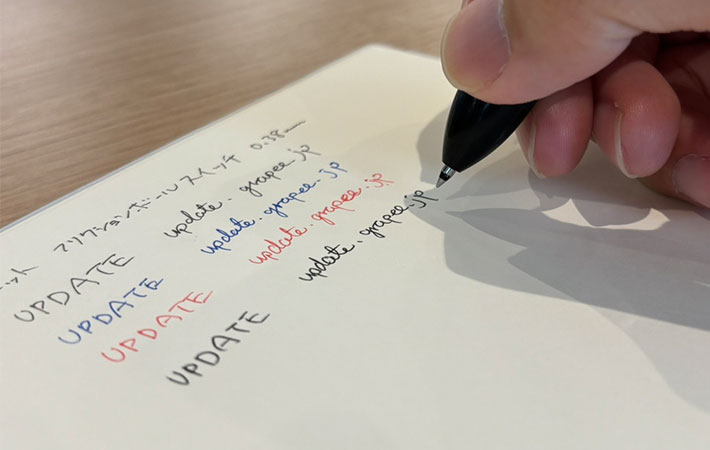 ット フリクションボール スイッチ 0.38mm
UPDATE update.grapee.jp
UPDATE update.grapee.jp
UPDATE update.grapee.jp
UPDATE update.grapee.jp